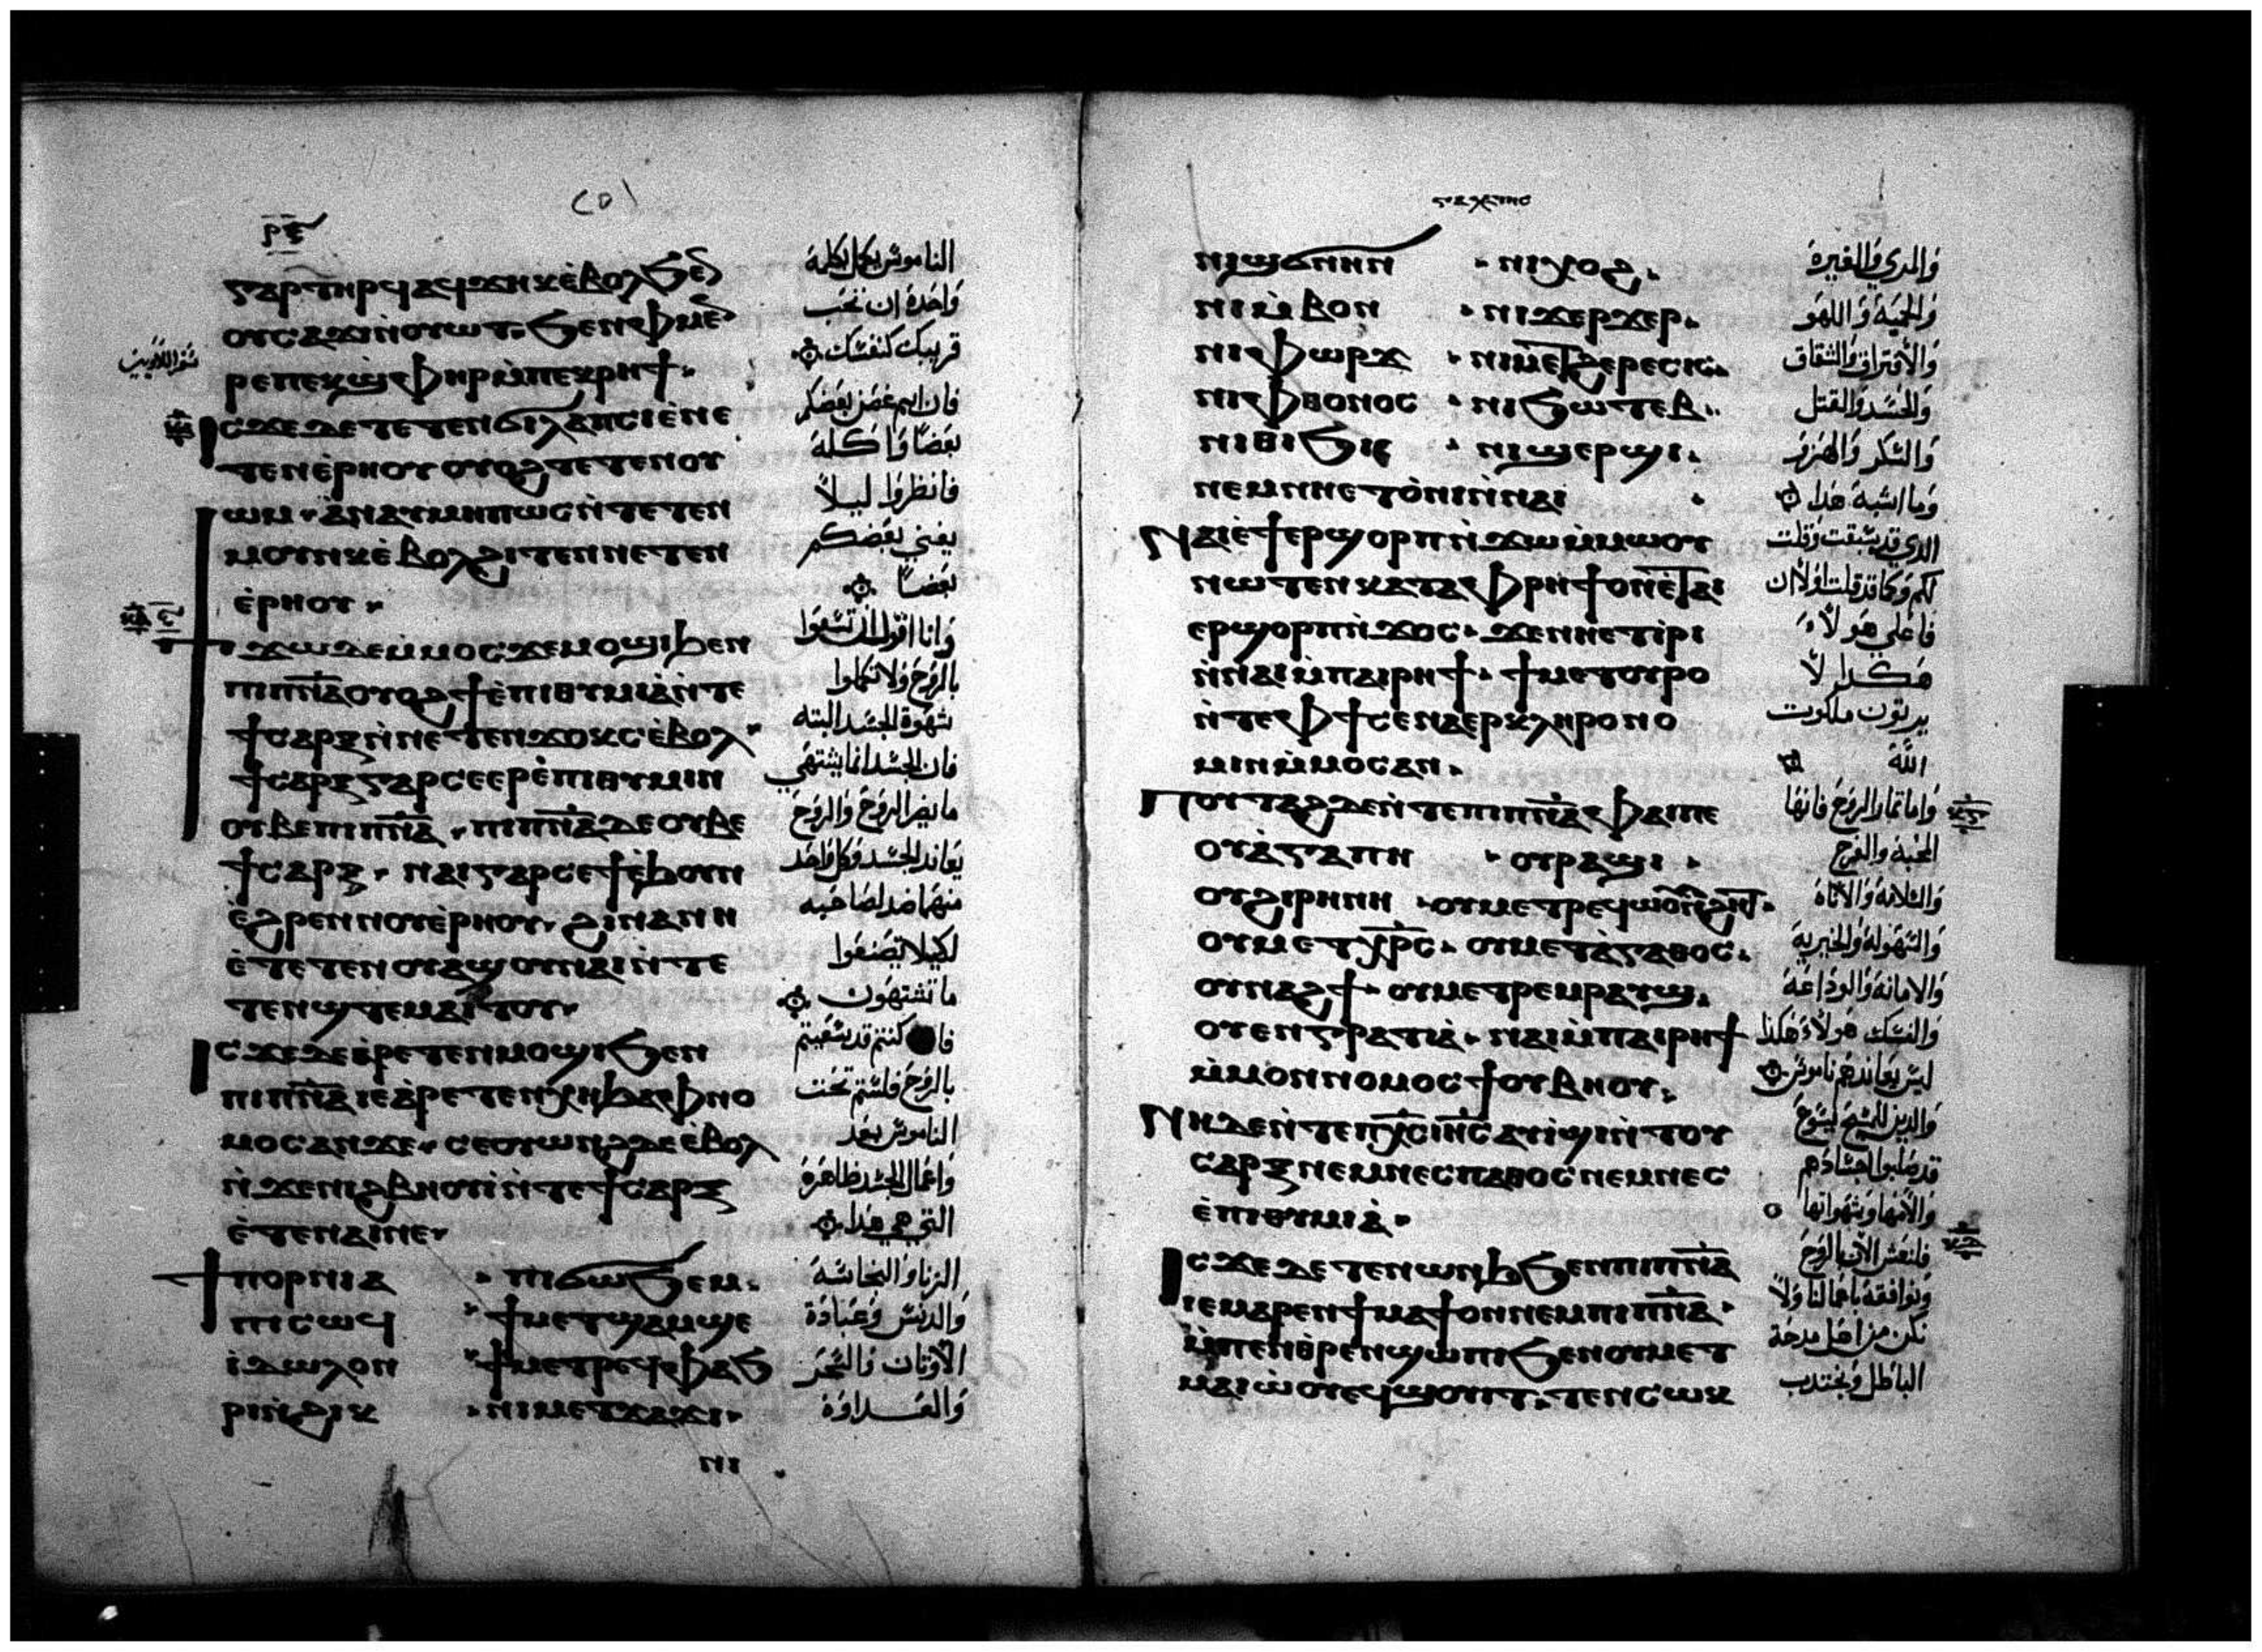 ⲣⲝ
ⲅⲁⲣ ⲧⲏⲣϥ ⲁϥϫⲏⲕ ⲉ̀ⲃⲟⲗ ϧⲉⲛ
ⲟⲩⲥⲁϫⲓ ⲛ̀ⲟⲩⲱⲧ· ϧⲉⲛ ⲫⲙⲉⲛ
ⲣⲉ ⲡⲉⲕϣⲫⲏⲣ ⲙ̀ⲡⲉⲕⲣⲏϯ·
ⲓⲥϫⲉ ⲇⲉ ⲧⲉⲧⲉⲛϭⲓⲗⲁⲡⲥⲓ ⲉ̀ⲛⲉ
ⲧⲉⲛⲉ̀ⲣⲏⲟⲩ ⲟⲩⲟϩ ⲧⲉⲧⲉⲛⲟⲩ
ⲱⲙ· ⲁ̀ⲛⲁⲩ ⲙⲏⲡⲱⲥ ⲛ̀ⲧⲉⲧⲉⲛ
ⲙⲟⲩⲛⲕ ⲉ̀ⲃⲟⲗ ϩⲓⲧⲉⲛ ⲛⲉⲧⲉⲛ
ⲉ̀ⲣⲏⲟⲩ·
ϯϫⲱ ⲇⲉ ⲙ̀ⲙⲟⲥ ϫⲉ ⲙⲟϣⲓ ϧⲉⲛ
ⲡⲓⲡ̅ⲛ̅ⲁ̅ ⲟⲩⲟϩ ϯⲉ̀ⲡⲓⲑⲩⲙⲓⲁ̀ ⲛ̀ⲧⲉ
ϯⲥⲁⲣⲝ ⲛ̀ⲛⲉⲧⲉⲛϫⲟⲕⲥ ⲉ̀ⲃⲟⲗ·
ϯⲥⲁⲣⲝ ⲅⲁⲣ ⲥⲉⲉⲣⲉ̀ⲡⲓⲑⲩⲙⲓⲛ
ⲟⲩⲃⲉ ⲡⲓⲡ̅ⲛ̅ⲁ̅· ⲡⲓⲡ̅ⲛ̅ⲁ̅ ⲇⲉ ⲟⲩⲃⲉ
ϯⲥⲁⲣⲝ· ⲛⲁⲓ ⲅⲁⲣ ⲥⲉϯ ⲉ̀ϧⲟⲩⲛ
ⲉ̀ϩⲣⲉⲛ ⲛⲟⲩⲉ̀ⲣⲏⲟⲩ· ϩⲓⲛⲁ ⲛⲏ
ⲉ̀ⲧⲉⲧⲉⲛⲟⲩⲁϣⲟⲩ ⲛⲁⲓ ⲛ̀ⲧⲉ
ⲧⲉⲛϣⲧⲉⲙⲁⲓⲧⲟⲩ·
ⲓⲥϫⲉ ⲇⲉ ⲉ̀ⲣⲉⲧⲉⲛⲙⲟϣⲓ ϧⲉⲛ
ⲡⲓⲡ̅ⲛ̅ⲁ̅ ⲓⲉ ⲁ̀ⲣⲉⲧⲉⲛⲭⲏ ϧⲁ ⲫⲛⲟ
ⲙⲟⲥ ⲁⲛ ϫⲉ· ⲥⲉⲟⲩⲱⲛϩ ⲇⲉ ⲉ̀ⲃⲟⲗ
ⲛ̀ϫⲉ ⲛⲓϩⲃⲏⲟⲩⲓ̀ ⲛ̀ⲧⲉ ϯⲥⲁⲣⲝ
ⲉ̀ⲧⲉ ⲛⲁⲓ ⲛⲉ·
ϯⲡⲟⲣⲛⲓⲁ · ⲡⲓϭⲱϧⲉⲙ·
ⲡⲓⲥⲱϥ · ϯⲙⲉⲧϣⲁⲙϣⲉ
ⲓ̀ⲇⲱⲗⲟⲛ · ϯⲙⲉⲧⲣⲉϥⲫⲁϧ
ⲣⲓ ⲛⲓϩⲓⲕ · ⲛⲓⲙⲉⲧϫⲁϫⲓ·
ⲛⲓ
الناموس بكل بكلمة
واحدة ان تحب
قريبك كنفسك
فان ايم غضن بعضكم
بعضا واكلة
فانظروا ليلا
يفني بعضكم
بعضا
وانا اقول ان تسعوا
بالروح ولا تكملوا
شهوة الجسد البته
فان الجسد انما يشتهي
ما يضر الروح والروح
يعاند الجسد وكل واحد
منهما ضد لصاحبه
لكيلا تصنعوا
ما تشتهون
كنتم قد سعيتم
بالروح فلستم تحت
الناموس بعد
واعمال الجسد ظاهرة
التي هي هذا
الزنا والنجاسة
والدنس وعبادة
الاوثان والسحر
والعداوة
ⲛⲓϣϭⲛⲏⲛ · ⲛⲓⲭⲟϩ·
ⲛⲓⲙ̀ⲃⲟⲛ · ⲛⲓϫⲉⲣϫⲉⲣ·
ⲛⲓⲫⲱⲣϫ · ⲛⲓⲙⲉⲧϩⲉⲣⲉⲥⲓⲥ·
ⲛⲓⲫⲑⲟⲛⲟⲥ · ⲛⲓϧⲱⲧⲉⲃ·
ⲛⲓⲑⲓϧⲓ · ⲛⲓϣⲉⲣϣⲓ·
ⲛⲉⲙ ⲛⲏ ⲉⲧⲟ̀ⲛⲓ ⲛ̀ⲛⲁⲓ ·
ⲛⲁⲓ ⲉ̀ϯⲉⲣϣⲟⲣⲡ ⲛ̀ϫⲱ ⲙ̀ⲙⲱⲟⲩ
ⲛⲱⲧⲉⲛ ⲕⲁⲧⲁ ⲫⲣⲏϯ ⲟⲛ ⲉ̀ⲧⲁⲓ
ⲉⲣϣⲟⲣⲡ ⲛ̀ϫⲟⲥ· ϫⲉ ⲛⲏ ⲉⲧⲓ̀ⲣⲓ
ⲛ̀ⲛⲁⲓ ⲙ̀ⲡⲁⲓⲣⲏϯ· ϯⲙⲉⲧⲟⲩⲣⲟ
ⲛ̀ⲧⲉ ⲫϯ ⲥⲉⲛⲁⲉⲣⲕⲗⲏⲣⲟⲛⲟ
ⲙⲓⲛ ⲙ̀ⲙⲟⲥ ⲁⲛ·
ⲡⲟⲩⲧⲁϩ ⲇⲉ ⲛ̀ⲧⲉ ⲡⲓⲡ̅ⲛ̅ⲁ̅ ⲫⲁⲓ ⲡⲉ
ⲟⲩⲁ̀ⲅⲁⲡⲏ · ⲟⲩⲣⲁϣⲓ ·
ⲟⲩϩⲓⲣⲏⲛⲏ ·ⲟⲩⲙⲉⲧⲣⲉϥⲱⲟⲩⲛ̀ϩⲏⲧ·
ⲟⲩⲙⲉⲧⲭ̅ⲣ̅ⲥ̅· ⲟⲩⲙⲉⲧⲁ̀ⲅⲁⲑⲟⲥ·
ⲟⲩⲛⲁϩϯ· ⲟⲩⲙⲉⲧⲣⲉⲙⲣⲁⲩϣ·
ⲟⲩⲉⲛⲅⲣⲁⲧⲓⲁ̀· ⲛⲁⲓ ⲙ̀ⲡⲁⲓⲣⲏϯ
ⲙ̀ⲙⲟⲛ ⲛⲟⲙⲟⲥ ϯ ⲟⲩⲃⲏⲟⲩ·
ⲛⲏ ⲇⲉ ⲛ̀ⲧⲉ ⲡⲭ̅ⲥ̅ ⲓⲏ̅ⲥ̅ ⲁⲩⲓ̀ϣⲓ ⲛ̀ⲧⲟⲩ
ⲥⲁⲣⲝ ⲛⲉⲙ ⲛⲉⲥⲡⲁⲑⲟⲥ ⲛⲉⲙ ⲛⲉⲥ
ⲉ̀ⲡⲓⲑⲩⲙⲓⲁ̀·
ⲓⲥϫⲉ ⲇⲉ ⲧⲉⲛⲱⲛϧ ϧⲉⲛ ⲡⲓⲡ̅ⲛ̅ⲁ̅
ⲓⲉ ⲙⲁⲣⲉⲛϯⲙⲁϯ ⲟⲛ ⲛⲉⲙ ⲡⲓⲡ̅ⲛ̅ⲁ̅·
ⲙ̀ⲡⲉⲛⲑ̀ⲣⲉⲛϣⲱⲡⲓ ϧⲉⲛ ⲟⲩⲙⲉⲧ
ⲙⲁⲓⲱ̀ⲟⲩ ⲉϥϣⲟⲩⲓⲧ· ⲧⲉⲛⲥⲱⲕ
والمري والغيرة
والحمية واللهو
والافتراق والشقاق
والحسد والقتل
والسكر والهزر
وما اشبه هذا
الذي قد سبقت وقلت
لكم وكما قد قلت اولا ان
فاعلي هولاء
هكذا لا
يرثون ملكوت
الله
واما ثمار الروح فانها
المحبة والفرح
والسلامة والاناة
والسهولة والخيرية
والامانة والوداعة
والنسك هولاء هكذا
ليس يعاندهم ناموس
والذين للمسيح يسوع
قد صلبوا اجسادهم
والامها وشهواتها
فلنعش الان بالروح
ونوافقه باعمالنا ولا
نكن من اهل مدحة
الباطل ونجتدب